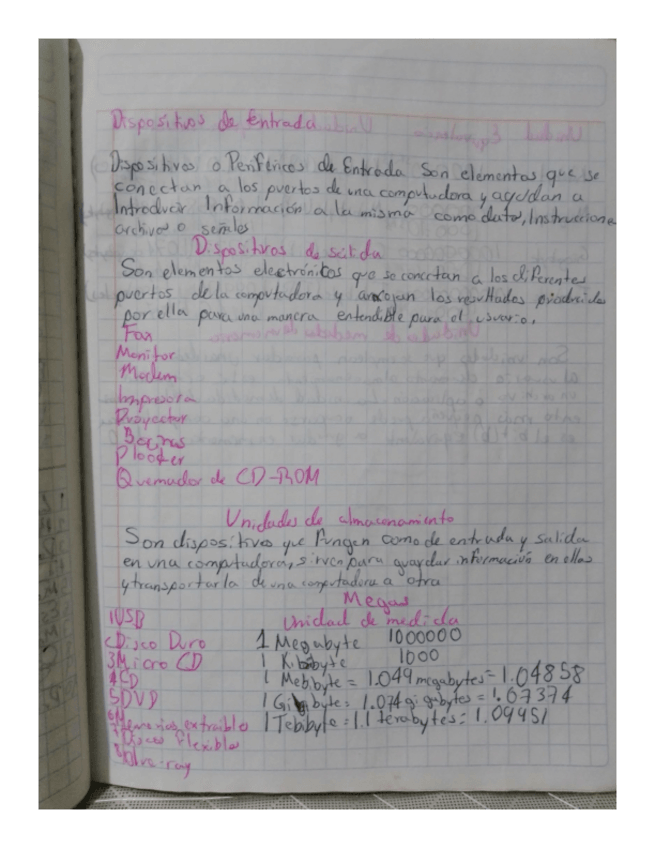 Dispositivos de Entrada
Dispositivos o Periféricos de Entrada Son elementos que se
conectan a los puertos de una computadora y ayudan a
Introducir Información a la misma como dato, Instruccione
archivo o señales
Dispositivos de salida
Son elementos electrónicos que se conectan a los diferentes
puertos de la computadora y arrojan los resultados producida
por ella para una manera entendible para el usuario.
Fax
Monitor
Modem
Impresora
Proyector
Bocinas
Plooter
Quemador de CD-ROM
Unidades de almacenamiento
Son dispositivos que Fungen como de entrada y salida
en una computadora, sirven para guardar información en ellas
y transportarla de una computadora a otra
Megas
1USB
Unidad de medida
Disco Duro 1 Megabyte 1000000
3Micro CD 1 1000
4CD 1 Mebibyte = 1.049 megabytes = 1.04858
5DVD 1 Gibibyte: 1.074 gigabytes = 1.07374
Memorias extraibles 1 Tebibyte = 1.1 terabytes: 1.09951
Disco Flexible